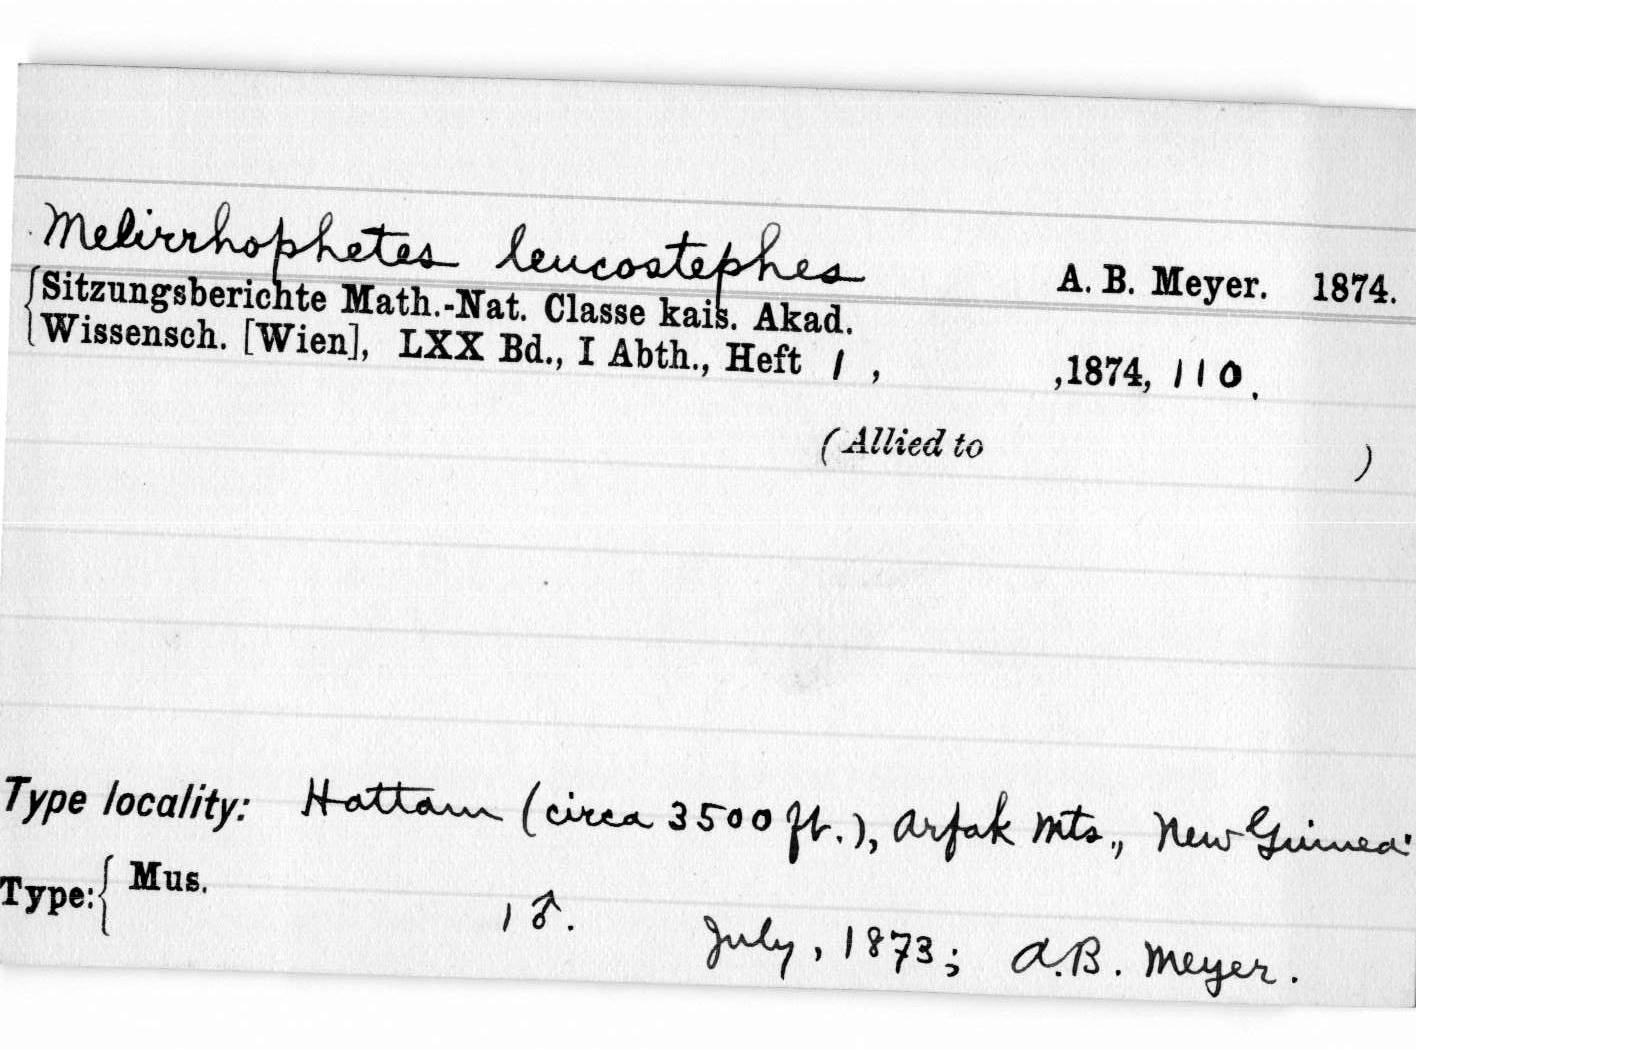 Melirrhophetes leucostephes A. B. Meyer. 1874.
Sitzungsberichte Math.-Nat. Classe kais. Akad.
Wissensch. [Wien], LXX Bd., I Abth., Heft 1, ,1874, 110.
(Allied to )
Type locality: Hattam (circa 3500 ft.), Arfak Mts., New Guinea.
Type: Mus. 1 ♂. July, 1873; A.B. Meyer.